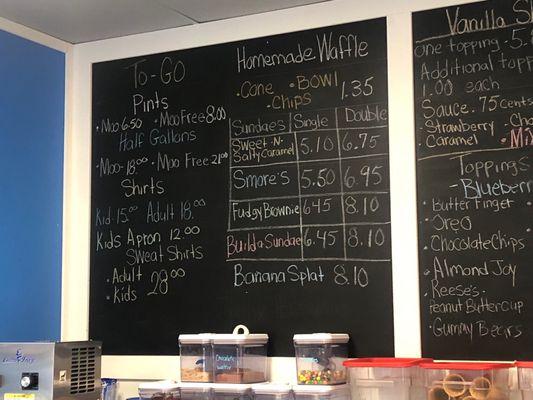 To-Go
Pints
•Moo 6.50 •Moo Free 8.00
Half Gallons
•Moo- 18.00 •Moo Free 21.00
Shirts
Kid- 15.00 Adult 18.00
Kids Apron 12.00
Sweat Shirts
•Adult
•Kids 28.00
Homemade Waffle
•Cone •Bowl
•Chips 1.35
Sundaes Single Double
Sweet-N-
Salty Caramel 5.10 6.75
Smore's 5.50 6.95
Fudgy Brownie 6.45 8.10
Build a Sundae 6.45 8.10
Banana Splat 8.10
Vanilla
one topping
Additional
1.00 each
Sauce .75 cents
•Strawberry
•Caramel
Toppings
-Blueberr
•Butter Finger
•Oreo
•Chocolate Chips
•Almond Joy
•Reese's
Peanut Butter Cup
•Gummy Bears